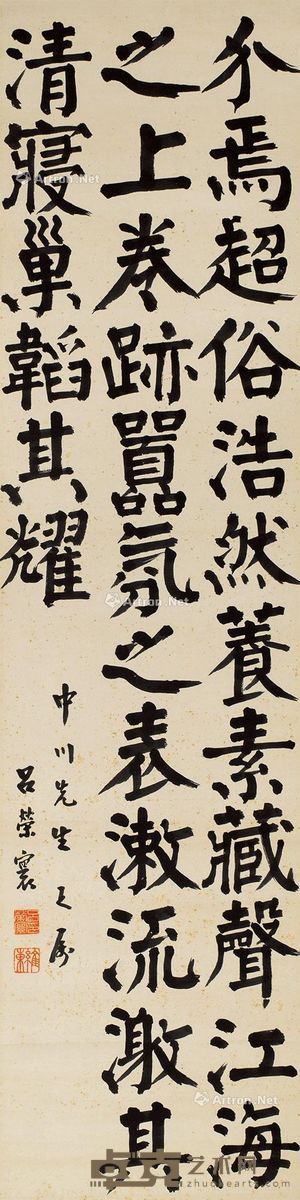 介焉超俗浩然養素藏聲江海
之上卷跡囂氛之表漱流激其
清寢巢韜其耀
中川先生之属
呂榮寰
Artron.Net
卓克艺术网